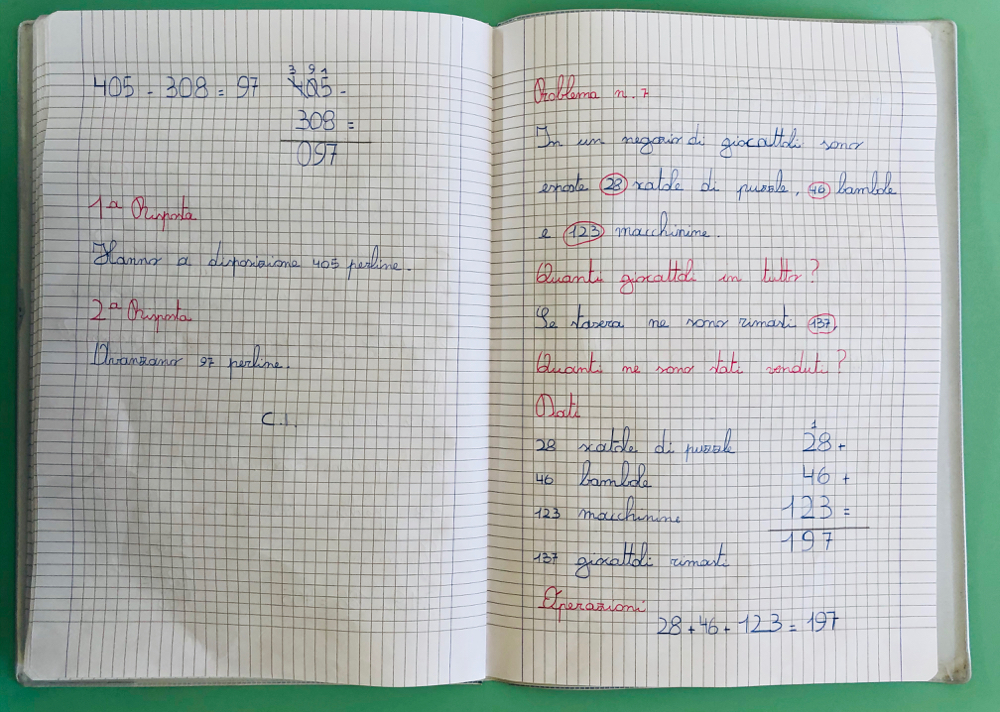 405 - 308 = 97
3 9 1
405 -
308 =
097
1ª Risposta
Hanno a disposizione 405 perline.
2ª Risposta
Avanzano 97 perline.
C.I.
Problema n. 7
In un negozio di giocattoli sono
esposte 28 scatole di puzzle, 46 bambole
e 123 macchinine.
Quanti giocattoli in tutto?
Se stasera ne sono rimasti 137
Quanti ne sono stati venduti?
Dati
28 scatole di puzzle
46 bambole
123 macchinine
137 giocattoli rimasti
1
28 +
46 +
123 =
197
Operazioni
28 + 46 + 123 = 197